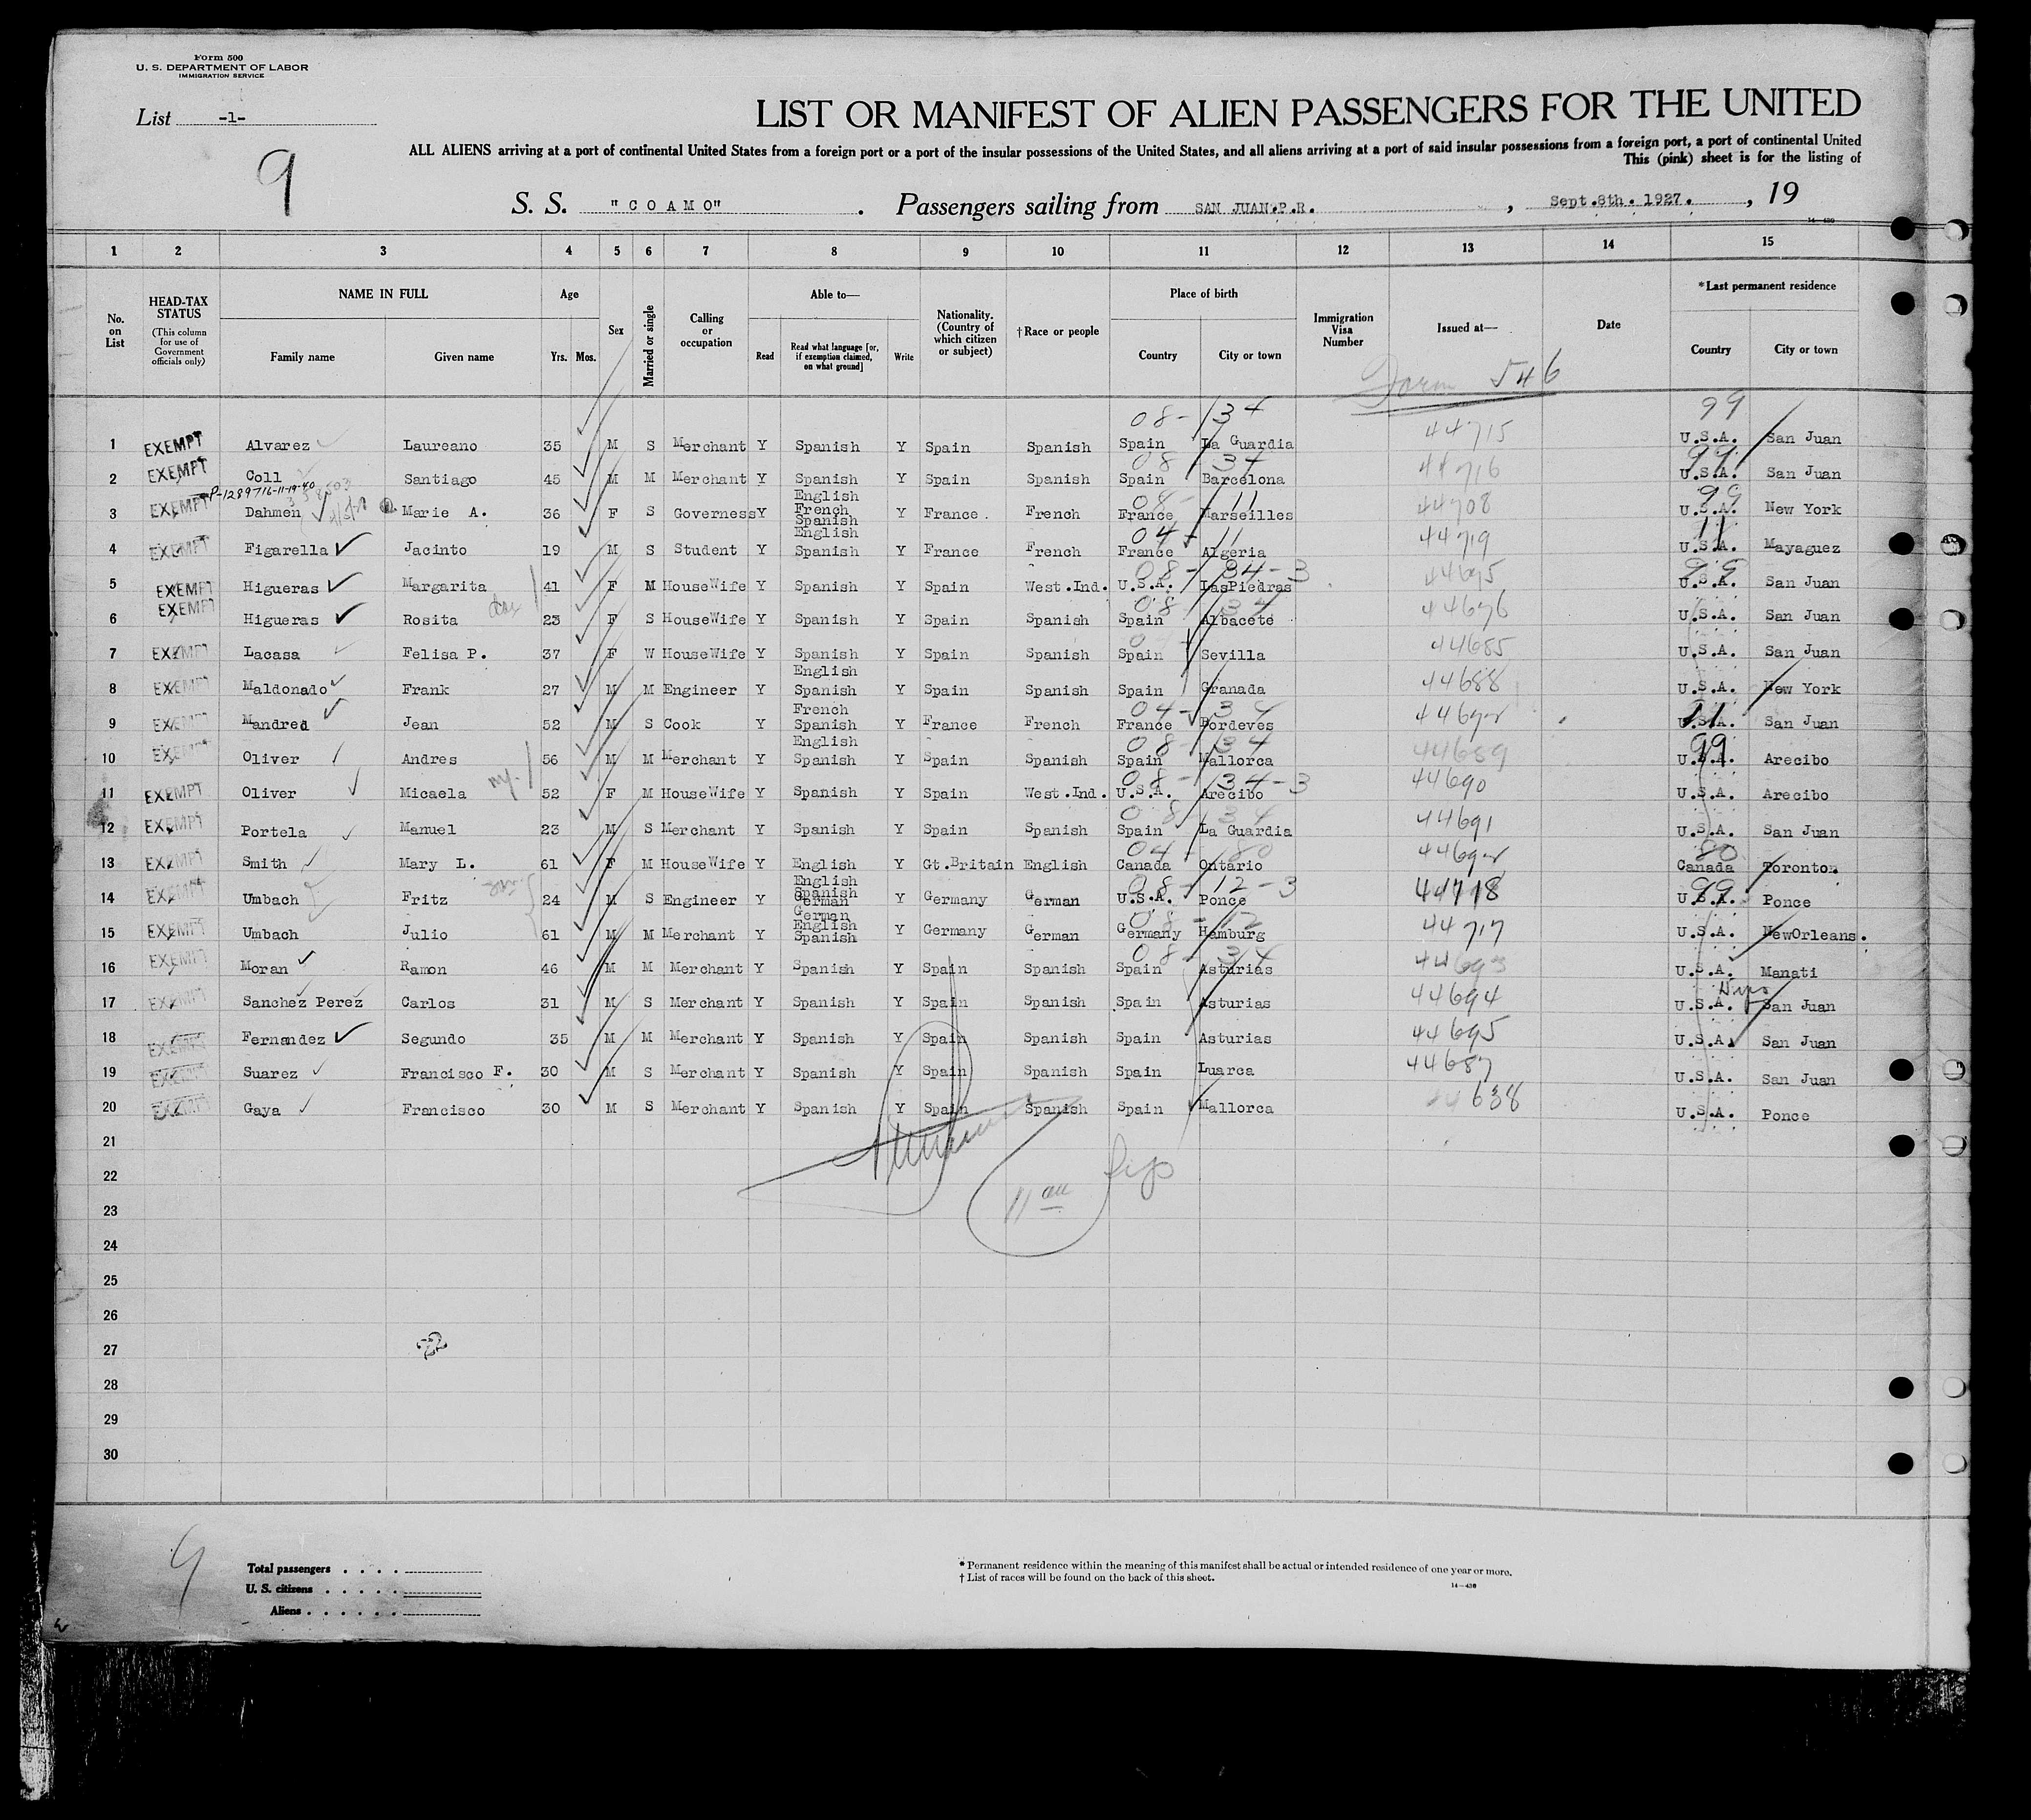 Form 500
U. S. DEPARTMENT OF LABOR
IMMIGRATION SERVICE
List -1-
9
LIST OR MANIFEST OF ALIEN PASSENGERS FOR THE UNITED
ALL ALIENS arriving at a port of continental United States from a foreign port or a port of the insular possessions of the United States, and all aliens arriving at a port of said insular possessions from a foreign port, a port of continental United
This (pink) sheet is for the listing of
S. S. "COAMO". Passengers sailing from SAN JUAN.P.R. , Sept.8th. 1927. , 19
14-430
1 2 3 4 5 6 7 8 9 10 11 12 13 14 15
No. on List HEAD-TAX STATUS (This column for use of Government officials only) NAME IN FULL Family name Given name Age Yrs. Mos. Sex Married or single Calling or occupation Able to— Read Read what language [or, if exemption claimed, on what ground] Write Nationality. (Country of which citizen or subject) †Race or people Place of birth Country City or town Immigration Visa Number Issued at— Date *Last permanent residence Country City or town
Form 546
08- 34 99
1 EXEMPT Alvarez Laureano 35 M S Merchant Y Spanish Y Spain Spanish Spain La Guardia 44715 U.S.A. San Juan
08 34 99
2 EXEMPT Coll Santiago 45 M M Merchant Y Spanish Y Spain Spanish Spain Barcelona 44716 U.S.A. San Juan
P-1289716-11-19-40
3 EXEMPT Dahmen Marie A. 36 F S Governess Y English French Spanish Y France. French France Marseilles 44708 U.S.A. New York
04 11 11
4 EXEMPT Figarella Jacinto 19 M S Student Y English Spanish Y France French France Algeria 44719 U.S.A. Mayaguez
08- 34-3 99
5 EXEMPT Higueras Margarita 41 F M HouseWife Y Spanish Y Spain West.Ind. U.S.A. LasPiedras 44695 U.S.A. San Juan
08 34
6 EXEMPT Higueras Rosita dau 23 F S HouseWife Y Spanish Y Spain Spanish Spain Albacete 44676 U.S.A. San Juan
7 EXEMPT Lacasa Felisa P. 37 F W HouseWife Y Spanish Y Spain Spanish Spain Sevilla 44685 U.S.A. San Juan
8 EXEMPT Maldonado Frank 27 M M Engineer Y English Spanish Y Spain Spanish Spain Granada 44688 U.S.A. New York
04- 34 11
9 EXEMPT Mandred Jean 52 M S Cook Y French Spanish Y France French France Bordeves U.S.A. San Juan
08- 34 99
10 EXEMPT Oliver Andres 56 M M Merchant Y English Spanish Y Spain Spanish Spain Mallorca 44689 U.S.A. Arecibo
08- 34-3
11 EXEMPT Oliver Micaela 52 F M HouseWife Y Spanish Y Spain West.Ind. U.S.A. Arecibo 44690 U.S.A. Arecibo
08 34
12 EXEMPT Portela Manuel 23 M S Merchant Y Spanish Y Spain Spanish Spain La Guardia 44691 U.S.A. San Juan
04- 80 80
13 EXEMPT Smith Mary L. 61 F M HouseWife Y English Y Gt.Britain English Canada Ontario Canada Toronto.
08- 12-3 99
14 EXEMPT Umbach Fritz 24 M S Engineer Y English Spanish German Y Germany German U.S.A. Ponce 44718 U.S.A. Ponce
08- 12
15 EXEMPT Umbach Julio 61 M M Merchant Y German English Spanish Y Germany German Germany Hamburg 44717 U.S.A. NewOrleans.
08- 34
16 EXEMPT Moran Ramon 46 M M Merchant Y Spanish Y Spain Spanish Spain Asturias 44693 U.S.A. Manati
17 EXEMPT Sanchez Perez Carlos 31 M S Merchant Y Spanish Y Spain Spanish Spain Asturias 44694 U.S.A. San Juan
18 EXEMPT Fernandez Segundo 35 M M Merchant Y Spanish Y Spain Spanish Spain Asturias 44695 U.S.A. San Juan
19 EXEMPT Suarez Francisco F. 30 M S Merchant Y Spanish Y Spain Spanish Spain Luarca 44687 U.S.A. San Juan
20 EXEMPT Gaya Francisco 30 M S Merchant Y Spanish Y Spain Spanish Spain Mallorca 638 U.S.A. Ponce
21
22
23
24
25
26
27
28
29
30
9
Total passengers . . . .
U. S. citizens . . . . .
Aliens . . . . . .
* Permanent residence within the meaning of this manifest shall be actual or intended residence of one year or more.
† List of races will be found on the back of this sheet.
14-430